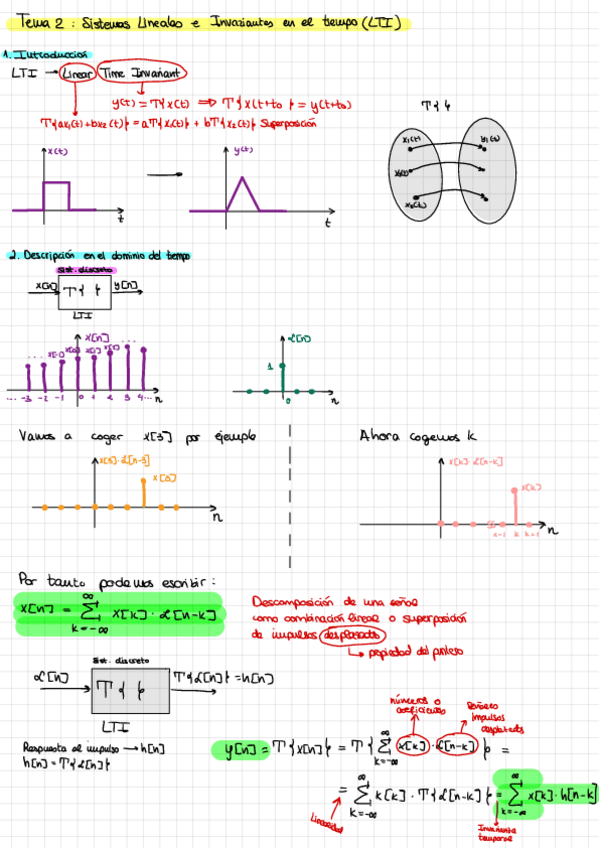 Tema 2 : Sistemas Lineales e Invariantes en el tiempo (LTI)
1. Introducción
LTI → Linear Time Invariant
y(t) = T{x(t) ⇒ T{x(t+to)} = y(t+to)
T{ax₁(t)+bx₂(t)} = aT{x₁(t)} + bT{x₂(t)} Superposición
T{ }
x(t)
t
y(t)
t
x₁(t)
y₁(t)
x₂(t)
2. Descripción en el dominio del tiempo
Sist. discreto
x[n] T{ } y[n]
LTI
x[n]
... x[-1] x[0] x[1] x[2] ...
... -3 -2 -1 0 1 2 3 4... n
δ[n]
1
0 n
Vamos a coger x[3] por ejemplo
Ahora cogemos k
x[3]·δ[n-3]
x[3]
n
x[k]·δ[n-k]
x[k]
k-1 k k+1 n
Por tanto podemos escribir:
x[n] = ∞ Σ k=-∞ x[k] · δ[n-k]
Descomposición de una señal
como combinación lineal o superposición
de impulsos desplazados
↳ propiedad del pulseo
Sist. discreto
δ[n] T{ } T{δ[n]} = h[n]
LTI
Respuesta al impulso → h[n]
h[n] = T{δ[n]}
números o coeficientes
impulsos
y[n] = T{x[n]} = T{ ∞ Σ k=-∞ x[k] · δ[n-k] } =
= ∞ Σ k=-∞ x[k] · T{δ[n-k]} = ∞ Σ k=-∞ x[k] · h[n-k]
Linealidad
Invarianza temporal